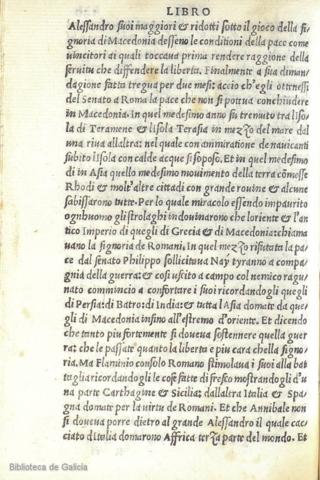 LIBRO
Alessandro suoi maggiori & ridotti sotto il gioco della si
gnoria di Macedonia desseno le conditioni della pace come
uincitori ai quali toccaua prima rendere raggione della
seruitu che diffendere la liberta. Finalmente a sua diman
dagione fatta tregua per due mesi: accio ch'egli ottenessi
del Senato a Roma la pace che non si pottua conchiudere
in Macedonia. In quel medesimo anno su tremuto tra l'iso
la di Teramene & l'isola Terasia in mezzo del mare dal
una riua all'altra: nel quale con amiratione de nauicanti
subito l'isola con calde acque si soposo. Et in quel medesimo
di in Asia quello medesimo mouimento della terra comosse
Rhodi & molt'altre cittadi con grande rouine & alcune
sabissarono tutte. Per lo quale miracolo essendo impaurito
ognhuomo gli strolaghi indouinarono che loriente & l'an
tico Imperio di quegli di Grecia & di Macedonia: chiama
uano la signoria de Romani. In quel mezzo rifiutata la pa
ce dal senato Philippo sollicitaua Nay tyranno a compa
gnia della guerra: & cosi uscito a campo col nemico ragu
nato commincio a confortare i suoi ricordandogli quegli
di Persia: Batro: India: & tutta l'Asia domate da que
gli di Macedonia insino all'estremo d'oriente. Et dicendo
che tanto piu fortemente si doueua sostennere quella guer
ra: che le passate quanto la liberta e piu cara chella signo
ria. Ma Flaminio consolo Romano stimolaua i suoi alla bat
taglia ricordandogli le cose fatte di fresco mostrandogli d'u
na parte Carthagine & Sicilia: dallaltra Italia & Spa
gna domate per la uirtu de Romani. Et che Annibale non
si doueua porre dietro al grande Alessandro il quale cac
ciato d'Italia domarono Affrica terza parte del mondo. Et
Biblioteca de Galicia